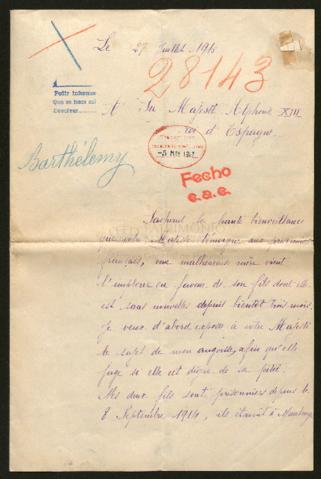 Le 27 Juillet 1915
28143
Petit Interne
Que se haca así
Devolver
A Sa Majesté Alphonse XIII
roi d'Espagne.
Barthélemy
Fecho
e.a.e.
la haute bienveillance
que votre Majesté témoigne aux prisonniers
français, une malheureuse mère vient
l'implorer en faveur de son fils dont elle
est sans nouvelles depuis bientôt trois mois.
Je veux d'abord exposer à votre Majesté
le sujet de mon angoisse, afin qu'elle
juge si elle est digne de sa pitié.
Mes deux fils sont prisonniers depuis le
8 Septembre 1914, ils étaient à Maubeuge